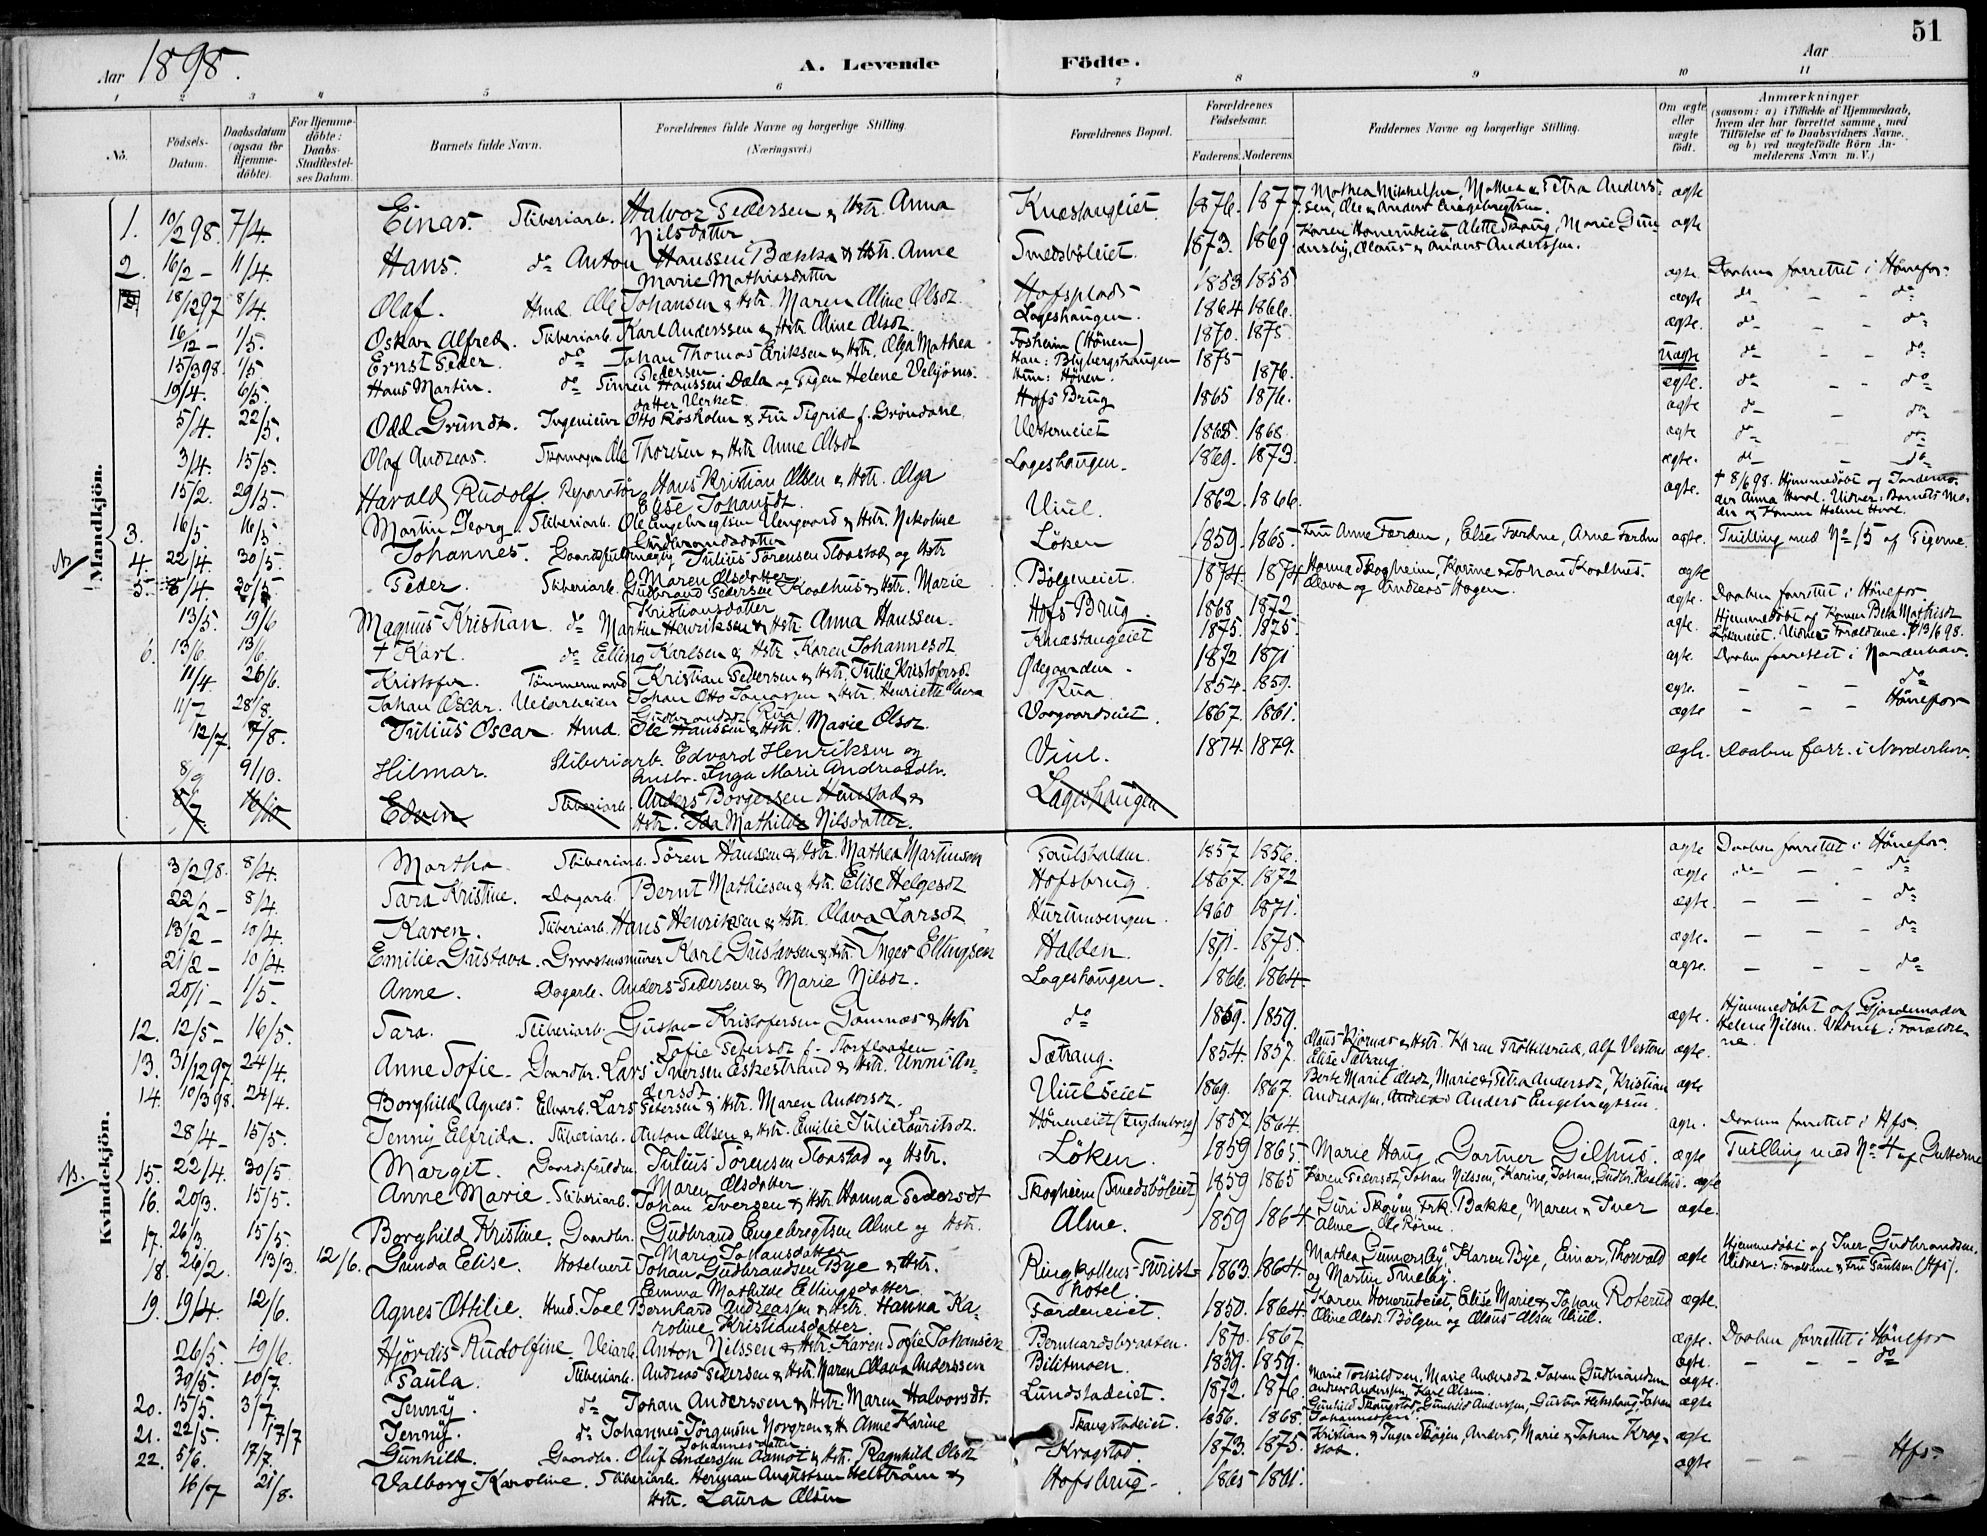 51
Aar 1898.
A. Levende Fødte.
Aar
1 2 3 4 5 6 7 8 9 10 11
No.
Fødsels-Datum.
Daabsdatum (ogsaa for Hjemmedøbte).
For Hjemmedøbte: Daabs-Stadfæstelses Datum.
Barnets fulde Navn.
Forældrenes fulde Navne og borgerlige Stilling. (Næringsvei.)
Forældrenes Bopæl.
Forældrenes Fødselsaar.
Faderens. Moderens.
Faddernes Navne og borgerlige Stilling.
Om ægte eller uægte født.
Anmærkninger
(saasom: a) i Tilfælde af Hjemmedaab, hvem der har forrettet samme, med Tilføielse af to Daabsvidners Navne. og b) ved uægtefødte Børn Anmelderens Navn m. V.)
Mandkjön.
1. 10/2 98. 7/4. Einar. Sliberiarb. Halvor Pedersen & Hstr. Anna Nilsdatter 1876. 1877. Mathea Mikkelsen, Mathea & Petra Anderssen, Ole & Anders Engebregtsen. ægte
2. 16/2 - 11/4. Hans. do Anton Hanssen Bække & Hstr. Anne Marie Mathiasdatter Smedsböleiet. 1873. 1869. Karen Honerudeiet, Alette Skaug, Marie Gundersby, Olaus & Anders Anderssen. ægte
18/12 97 8/4. Olaf. Hmd. Ole Johansen & Hstr. Maren Oline Olsdt. Hofsplads 1853 1855 ægte. Daaben forrettet i Hönefos.
16/12 - 1/5. Oskar Alfred. Sliberiarb. Karl Anderssen & Hstr. Oline Olsdt. Lageshaugen. 1864 1866. ægte do - - do
15/3 98. 1/5. Ernst Peder. do Johan Thomas Eriksen & Hstr. Olga Mathea Pedersen Fosheim (Hönen) 1870. 1875. ægte. do - - do
19/4. 6/5. Hans Martin. do Simen Hanssen Dæla og Pigen Helene Vebjörnsdatter Verket. Han: Blybergshaugen Hun: Hönen. 1875 1876. uægte do - - do
5/4. 22/5. Odd Grundt. Ingenieur Otto Røsholm & Fru Sigrid f. Gröndahl Hofs Brug 1865 1876. ægte. do - - do
3/4. 15/5. Olaf Andreas. Ole Thoresen & Hstr. Anne Olsdt Vesterneiet 1868. 1868. ægte do - do
15/2. 29/5. Harald Rudolf. Reparatör Hans Kristian Olsen & Hstr. Olga Elise Johansdt. Lageshaugen. 1869. 1873. ægte do - do
3. 16/5 16/5. Martin Georg. Sliberiarb. Ole Engebregtsen Vengaard & Hstr. Nikoline Gudbrandsdatter Viul. 1862. 1866. ægte. † 8/6 98. Hjemmedöbt af Jordemoder Anna Hval. Vidner: Barnets Moder og Konen Helene Hval.
4. 22/4. 30/5. Johannes. Gaardsfuldmægtig Julius Sörensen Staastad og Hstr Maren Olsdatter Löken 1859. 1865. Fru Anne Færden, Else Færden, Arne Færden ægte. Tvilling med No 15 af Pigerne.
5. 8/4 20/5 Peder. Sliberiarb. Gudbrand Pedersen Koalhus & Hstr. Marie Kristiansdatter Bölgeneiet. 1874. 1874. Hanna Skogheim, Karine & Johan Koalhus. Olava og Anders Hagen. ægte
13/5. 19/6 Magnus Kristian. do Martin Henriksen & Hstr. Anna Hanssen. Hofs Brug 1868 1872. ægte. Daaben forrettet i Hönefos.
6. 13/6. 13/6. † Karl. do Elling Karlsen & Hstr. Karen Johannesdt Knæstangeiet 1875. 1875. ægte. Hjemmedöbt af Konen Berte Mathisdt Lökeneiet. Vidner Forældrene. † 13/6 98.
11/4. 26/6. Kristofer. Tömmermand Kristian Pedersen & Hstr. Julie Kristofersd. Ødegaarden. 1872 1871 ægte. Daaben forrettet i Norderhov.
11/7 28/8. Johan Oscar. Veiarbeider Johan Otto Jonassen & Hstr. Henriette Olava Gudbrandsdt (Rua) Rua 1854. 1859. ægte. - - - do
12/7. 7/8. Julius Oscar. Hmd. Ole Hanssen & Hstr. Marie Olsdt. 1867. 1861. ægte - - - Hönefos
8/9 9/10. Hilmar. Sliberiarb. Edvard Henriksen og Hustr. Inga Marie Andreasdtr. Viul. 1874. 1879. ægte. Daaben forr. i Norderhov.
8/7. 16/10 Edvin Sliberiarb. Anders Borgersen Hunstad & Hstr. Ida Mathilde Nilsdatter. Lageshaugen
Kvindekjön.
3/2 98. 8/4. Martha. Sliberiarb. Sören Hanssen & Hstr. Mathea Martinsen 1857 1856. ægte Daaben forrettet i Hönefos.
22/2 - 8/4. Sara Kristine. Dagarb. Bernt Mathiesen & Hstr. Elise Helgesdt Hofsbrug. 1867. 1872 ægte do - - - do
13/2 - 10/4. Karen. Sliberiarb. Hans Henriksen & Hstr. Olava Larsdt Hurumsengen. 1860 1871. ægte. - - - do
21/2 - 10/4. Emilie Gustava. Graastensmurer Karl Gustavsen & Hstr. Inger Ellingsen Halden. 1871. 1875 ægte. - - - do
20/1 - 1/5. Anne. Dagarb. Anders Pedersen & Marie Nilsdt. Lageshaugen. 1866. 1864 ægte. - - - do
12. 12/5 - 16/5. Sara. Sliberiarb. Gustav Kristofersen Gomnæs & Hstr Sofie Pedersdt f. Storfloaten do 1859. 1859. ægte. Hjemmedöbt af Gjordemoder Helene Nilsen. Vidner: Forældrene.
13. 31/12 97. 24/4. Anne Sofie. Gaardbr. Lars Iversen Eskestrand & Hstr. Anni Andersdt Sætrang. 1854. 1857. Olaus Bjørnes & Hstr. Karen Trøttelsrud, Alf Vestern Elise Sætrang ægte.
14. 10/3 98. 24/4. Borghild Agnes. Elvarb. Lars Petersen & Hstr. Maren Andersdt. Viulseiet 1869. 1867. Berte Marie Olsdt, Marie & Petra Andersdt, Kristian Andreassen, Anders Engebregtsen. ægte
28/4 - 15/5. Jenny Elfrida. Sliberiarb. Anton Olsen & Hstr. Emilie Julie Lauritsdt. Høneneiet 1857. 1864. ægte. Daaben forrettet i Hfs.
15. 22/4. 30/5. Margit. Gaardsfuldm. Julius Sörensen Staastad og Hstr. Maren Olsdatter Löken. 1859 1865. Marie Haug, Gartner Gilhus. ægte Tvilling med No 4 af Gutterne
16. 20/3. 15/5. Anne Marie. Sliberiarb. Johan Iversen & Hstr. Hanna Pedersdt Skogheim (Smedsböleiet) 1859 1865 Karen Pedersdt, Johan Nilssen, Karine, Johan, Gudbr. Koalhus. ægte
17. 26/3. 15/5. Borghild Kristine. Gaardbr. Gudbrand Engebregtsen Alme og Hstr. Mari Johansdatter Alme. 1859 1864 Guri Skøyen Frk. Bakke, Maren & Iver Alme Ole Rörne. ægte.
18. 26/2. 13/3. 12/6. Gunda Elise. Hotelvert Johan Gudbrandsen Bye & Hstr. Emma Mathilde Ellingsdatter Ringkollens Turisthotel. 1863. 1864. Mathea Gunnersby, Karen Bye, Einar, Thorvald og Martin Smeby. ægte Hjemmedöbt af Iver Gudbrandsen. Vidner: Forældrene & Fru Paulsen (Hfs).
19. 19/4. 12/6. Agnes Ottilie. Hmd. Joel Bernhard Andreassen & Hstr. Hanna Karoline Kristiansdatter Færdeneiet. 1850. 1864 Karen Honerudeiet, Elise Marie & Johan Roterud Oline Olsdt. Bölgen og Olaus Olsen Viul. ægte.
26/5. 19/6. Hjördis Rudolfine. Veiarb. Anton Nilssen & Hstr. Karen Sofie Johansen Bernhardsbraaten. 1870. 1867 ægte. Daaben forrettet i Hönefos
30/5. 10/7. Paula. Sliberiarb. Andreas Pedersen & Hstr. Maren Olava Anderssen Bilitmoen. 1859. 1859. ægte. - - - do
20. 15/5. 3/7. Jenny. do Johan Anderssen & Hstr. Maren Halvorsdt. Lundstadeiet. 1872. 1876. Marie Torkildsen, Marie Andersdt, Johan Gudbrandsen Andreas Anderssen, Karl Olsen. ægte.
21. 22/5. 17/7 Jenny. do Johannes Jörgensen Norgren & H. Anne Karine Johannesdatter Skaugstadeiet. 1856. 1868. Gunhild Skaugstad, Gunhild Anderssen, Johan Johannessen. ægte
22. 5/6. 17/7. Gunhild. Gaardbr. Oluf Anderssen Aamot & Hstr. Ragnhild Olsdt Kragstad. 1873. 1875. Kristian & Inger Skøien, Anders, Marie & Johan Kragstad. ægte
16/7 21/8. Valborg Karoline. Sliberiarb. Herman Augustsen Hellström & Hstr. Laura Olsen Hofsbrug. 1865 1861. ægte - - - Hfs.